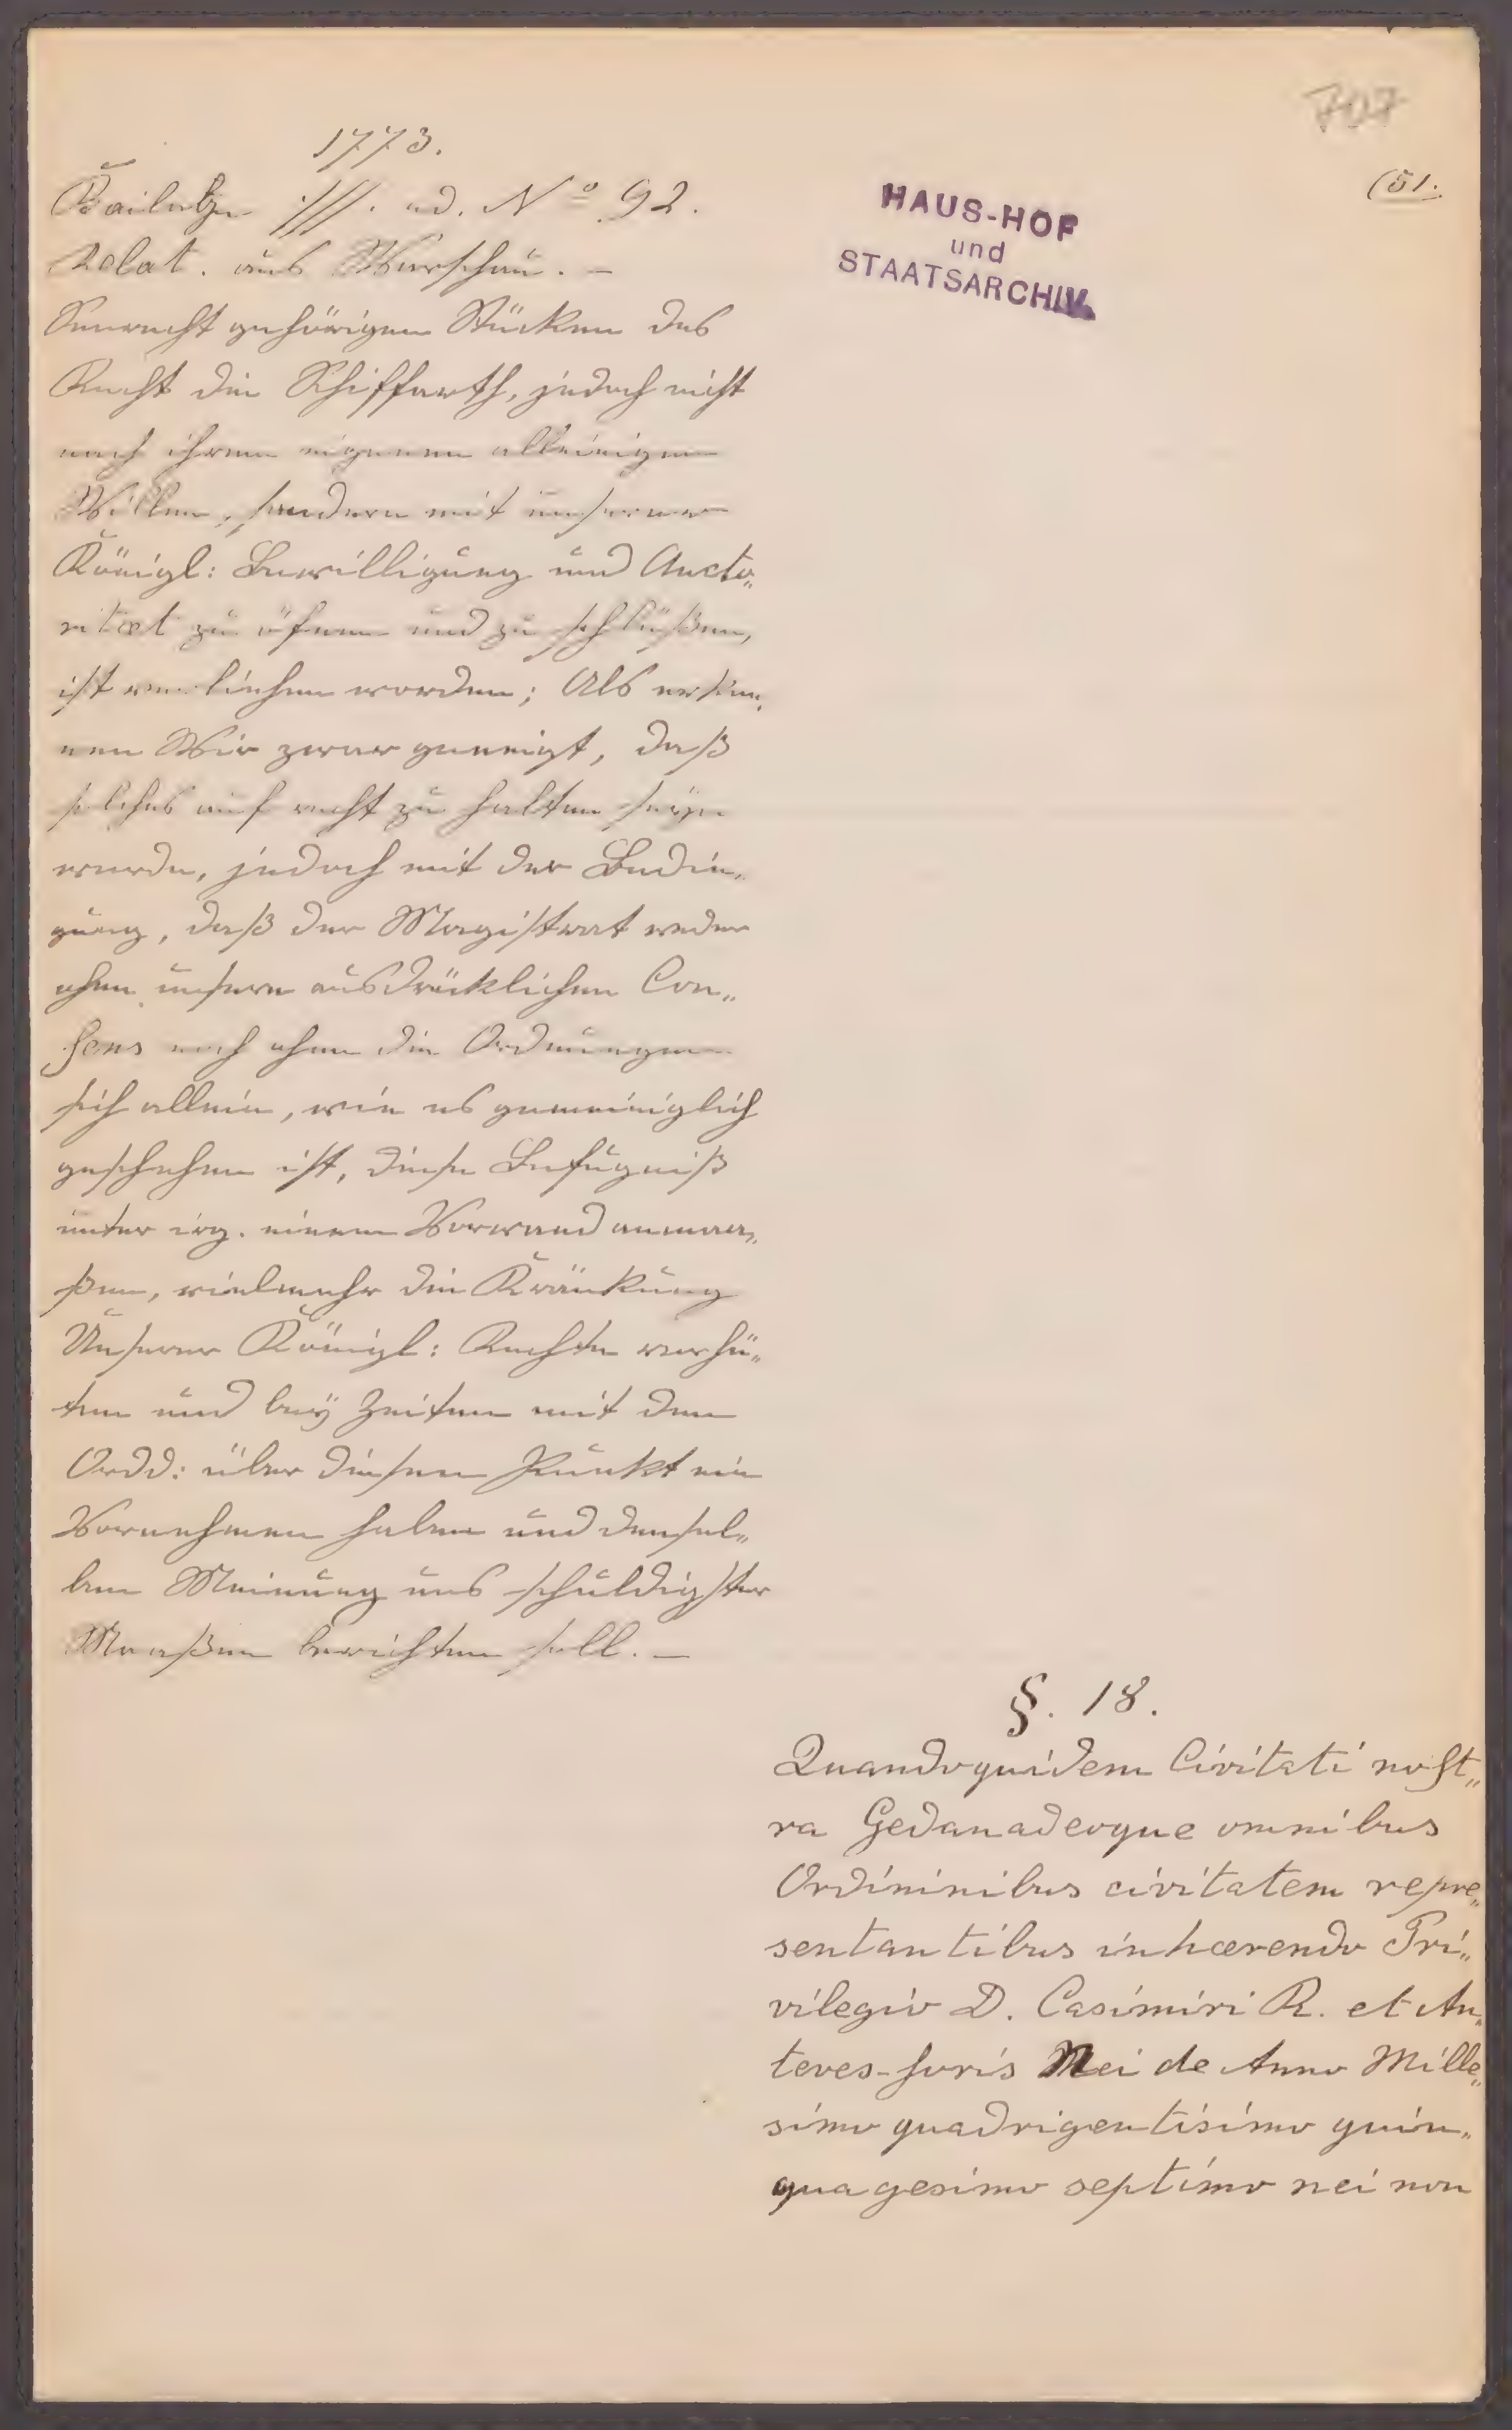 707
(51.
1773.
Bailage ·///. ad. No 92.
Relat. aus Warschau. –
HAUS-HOF
und
STAATSARCHIV.
Seerecht gehörigen Stücken das
Recht die Schiffarth, jedoch nicht
nach ihrem eigenen alleinigen
Willen, sondern mit unserer
Königl: Bewilligung und Aucto„
ritæt zu öfnen und zu schlüßen,
ist verliehen worden; Als erken„
nen Wir zwar geneigt, daß
solches auf recht zu halten seÿn
werde, jedoch mit der Bedin„
gung, daß der Magistrat weder
ohne unsern ausdrücklichen Con„
sens noch ohne die Ordnungen
sich allein, wie es gemeiniglich
geschehen ist, diese Befugniß
unter irg. einem Vorwand anmaa„
ßen, vielmehr die Kränkung
Unserer Königl: Rechte verhü„
ten und beÿ Zeiten mit den
Ordd: über diesen Punkt ein
Vernehmen haben und densel„
ben Meinung uns schuldigster
Maaßen berichten soll. –
§. 18.
Quandoquidem Civitati nost„
ra Gedanadeoque omnibus
Ordininibus civitatem repre„
sentantibus inhærendo Pri„
vilegio D. Casimiri R. et An„
teces-soris Nei de Anno Mille„
simo quadrigentisimo quin„
quagesimo septimo nei non